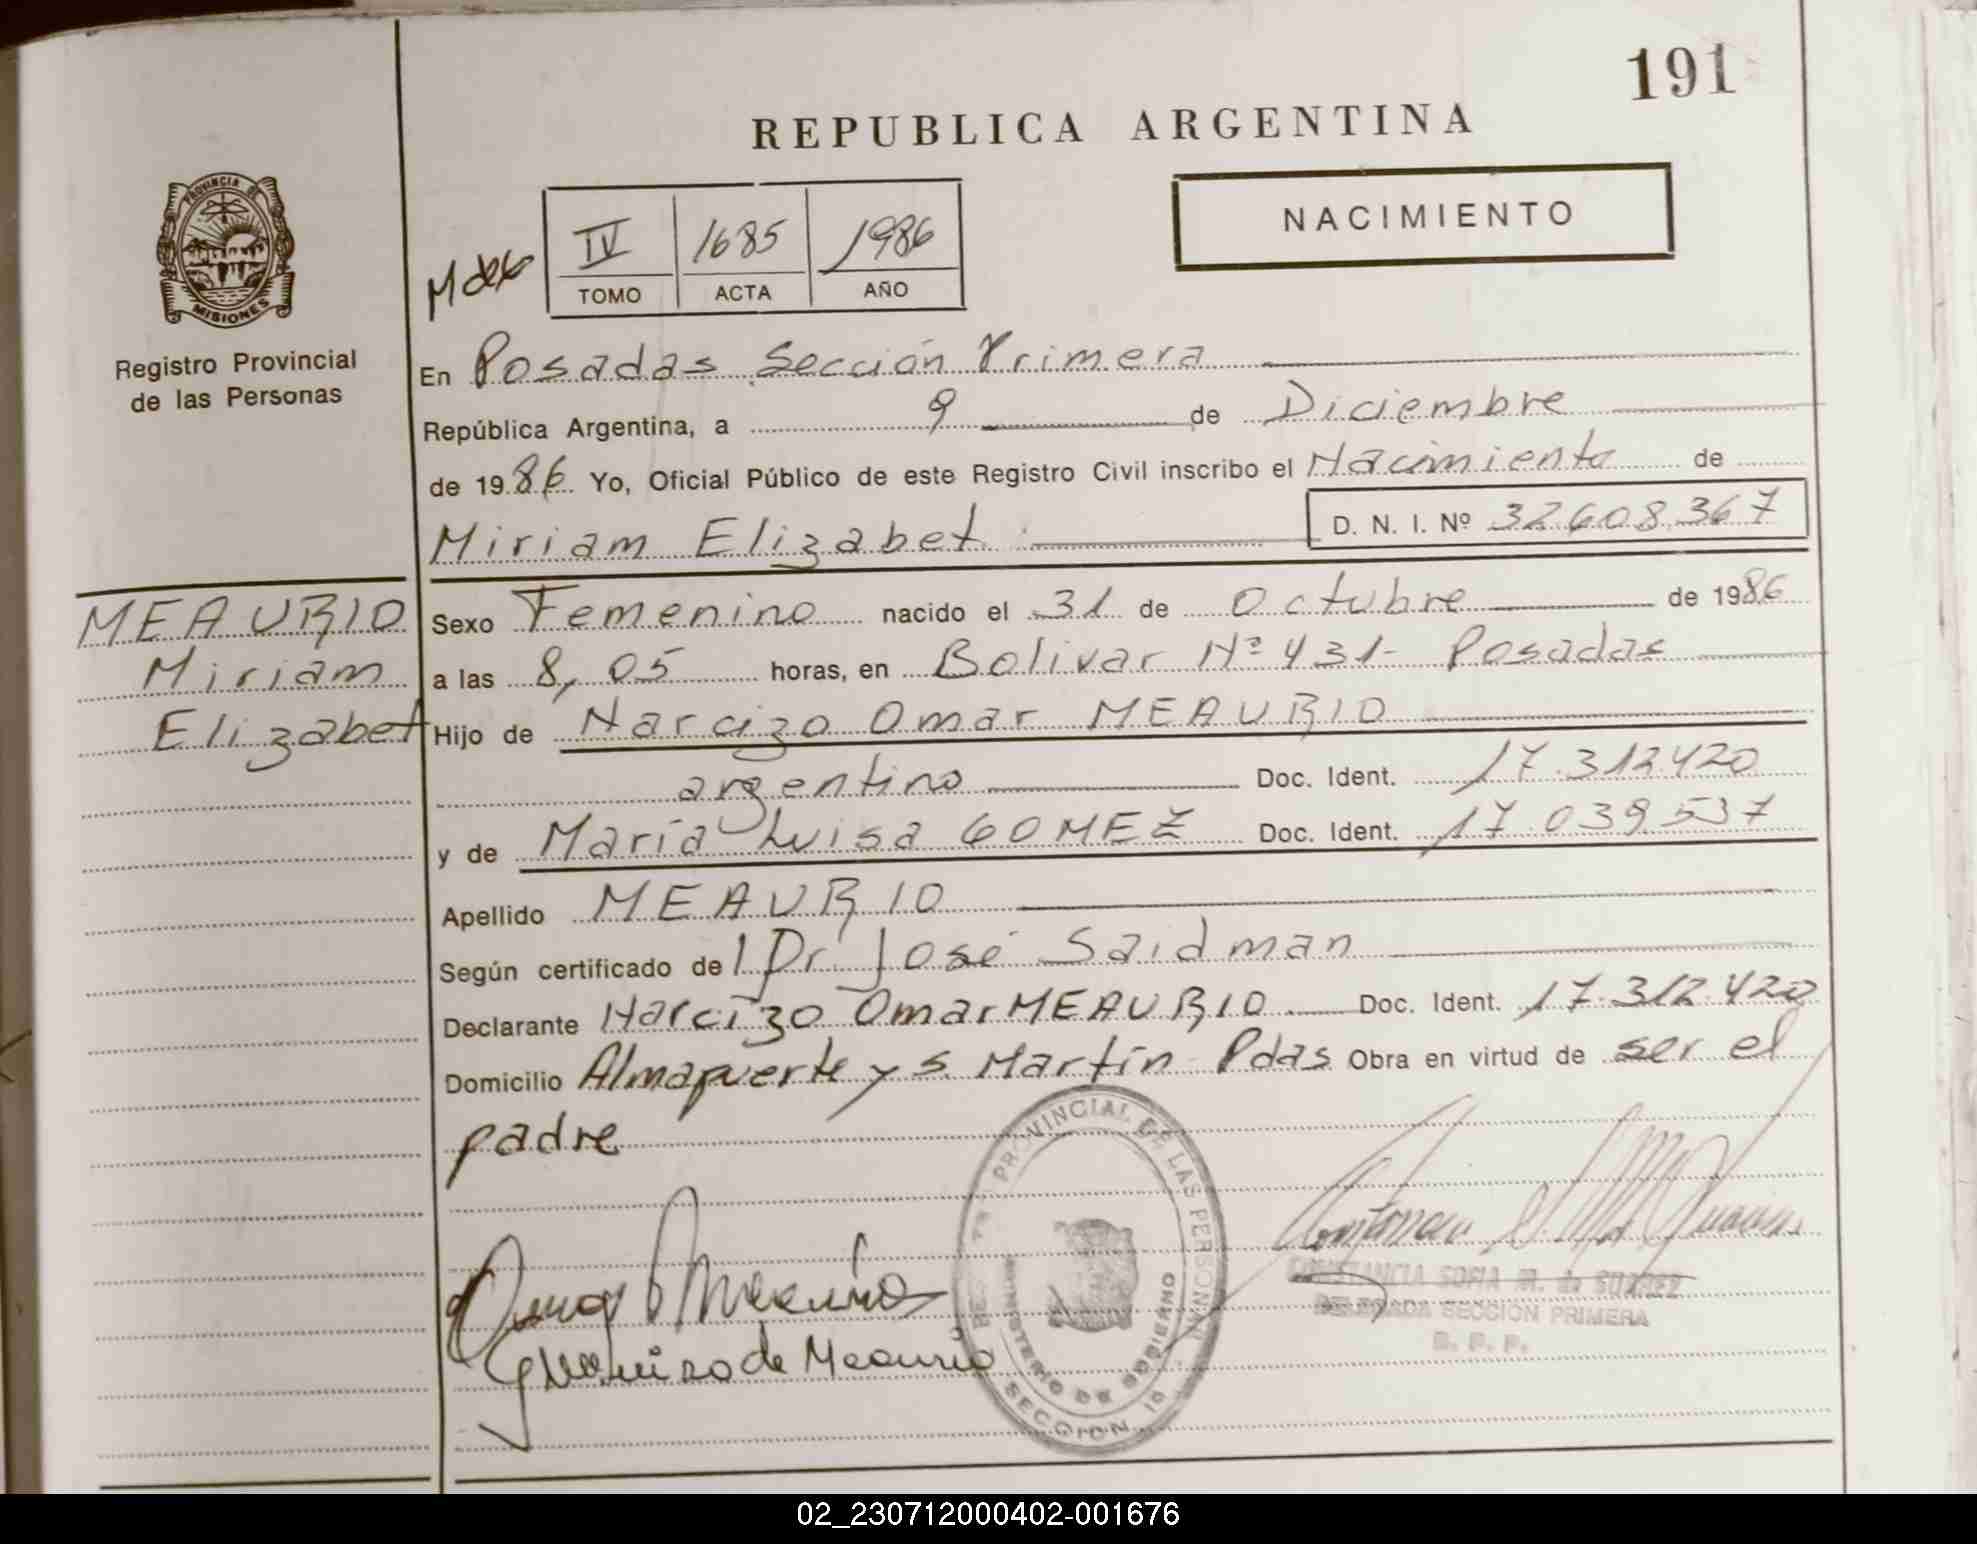 191
REPUBLICA ARGENTINA
PROVINCIA DE
MISIONES
NACIMIENTO
IV 1685 1986
TOMO ACTA AÑO
Registro Provincial
de las Personas
En Posadas Sección Primera
República Argentina, a 9 de Diciembre
de 1986 Yo, Oficial Público de este Registro Civil inscribo el Nacimiento de
Miriam Elizabet D. N. I. Nº 32608.367
MEAURIO
Miriam
Elizabet
Sexo Femenino nacido el 31 de Octubre de 1986
a las 8,05 horas, en Bolivar Nº 431- Posadas
Hijo de Narcizo Omar MEAURIO
argentino Doc. Ident. 17.312420
y de María Luisa GOMEZ Doc. Ident. 17.039.537
Apellido MEAURIO
Según certificado del Dr José Saidman
Declarante Narcizo Omar MEAURIO Doc. Ident. 17.312.420
Domicilio Almafuerte y S. Martín Pdas Obra en virtud de ser el
padre
PROVINCIAL DE LAS PERSONAS
MINISTERIO DE GOBIERNO
SECCION 1º
CONSTANCIA SOFIA M. de SUAREZ
DELEGADA SECCIÓN PRIMERA
R. P. P.
de Meaurio
02_230712000402-001676